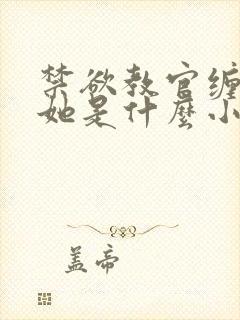 禁欲教官缠
她是什麼小
盖帝